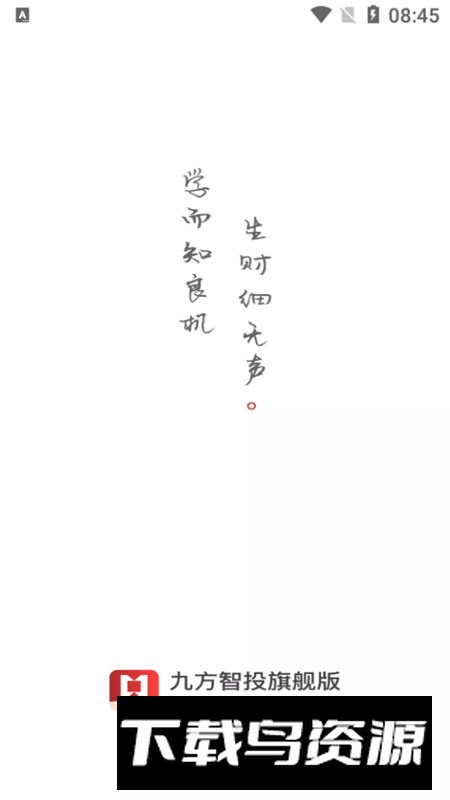 08:45
学而知良机
生财细无声。
九方智投旗舰版
下载鸟资源